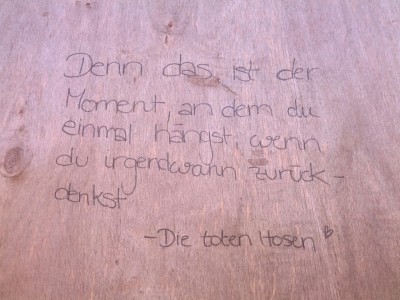 Denn das, ist der
Moment, an dem du
einmal hängst, wenn
du irgendwann zurück-
denkst
-Die toten Hosen